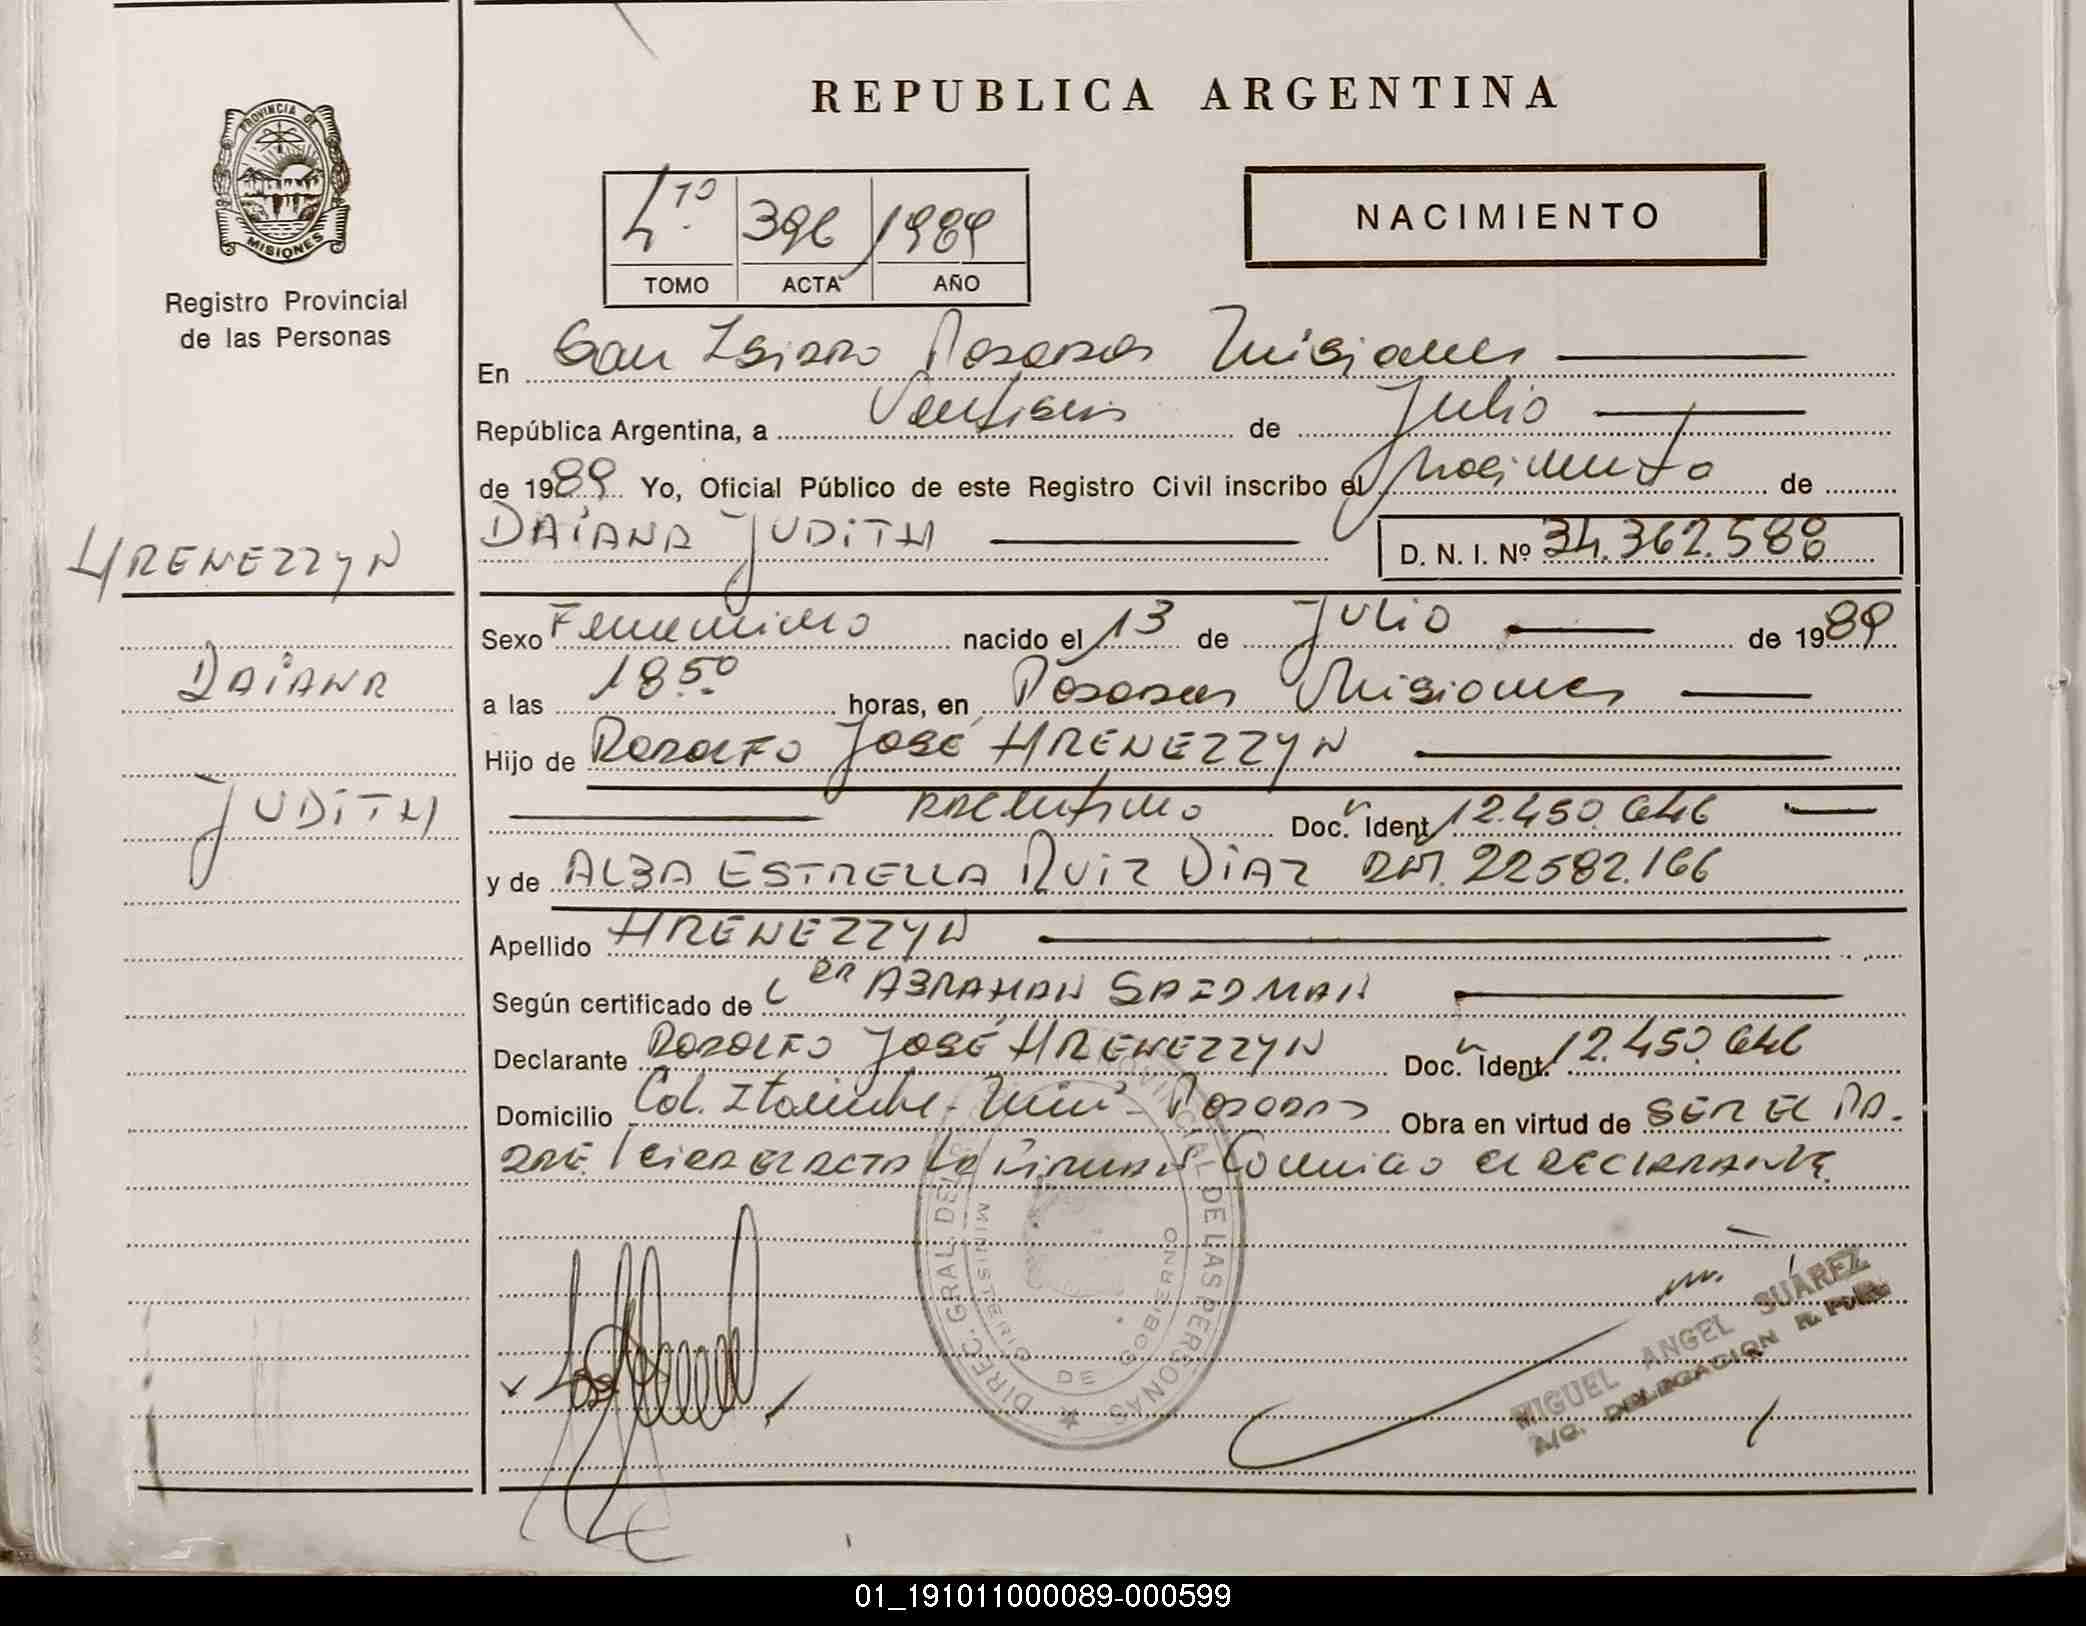 REPUBLICA ARGENTINA
PROVINCIA DE
MISIONES
Registro Provincial
de las Personas
4to 396 1989
TOMO ACTA AÑO
NACIMIENTO
En San Isidro Posadas Misiones
República Argentina, a Ventiseis de Julio
de 1989 Yo, Oficial Público de este Registro Civil inscribo el Nacimiento de
DAiANA JUDiTH D. N. I. Nº 34.362.588
HRENEZZYN
DAiANA
JUDiTH
Sexo Femenino nacido el 13 de Julio de 1989
a las 18.50 horas, en Posadas Misiones
Hijo de RODOLFO JOSÉ HRENEZZYN
Argentino Doc. Ident 12.450.646
y de ALBA ESTRELLA RUiZ DiAZ DNI. 22582.166
Apellido HRENEZZYN
Según certificado de ABRAHAN
Declarante RODOLFO JOSÉ HRENEZZYN Doc. Ident. 12.450.646
Domicilio Col. Itaembe Miní Posadas Obra en virtud de SER EL PA-
DRE. Leida el acta la firman Conmigo el DECLARANTE.
DIREC. GRAL. DEL PROVINCIAL DE LAS PERSONAS
MINISTERIO DE GOBIERNO
MIGUEL ANGEL SUAREZ
A/C. DELEGACION
01_191011000089-000599